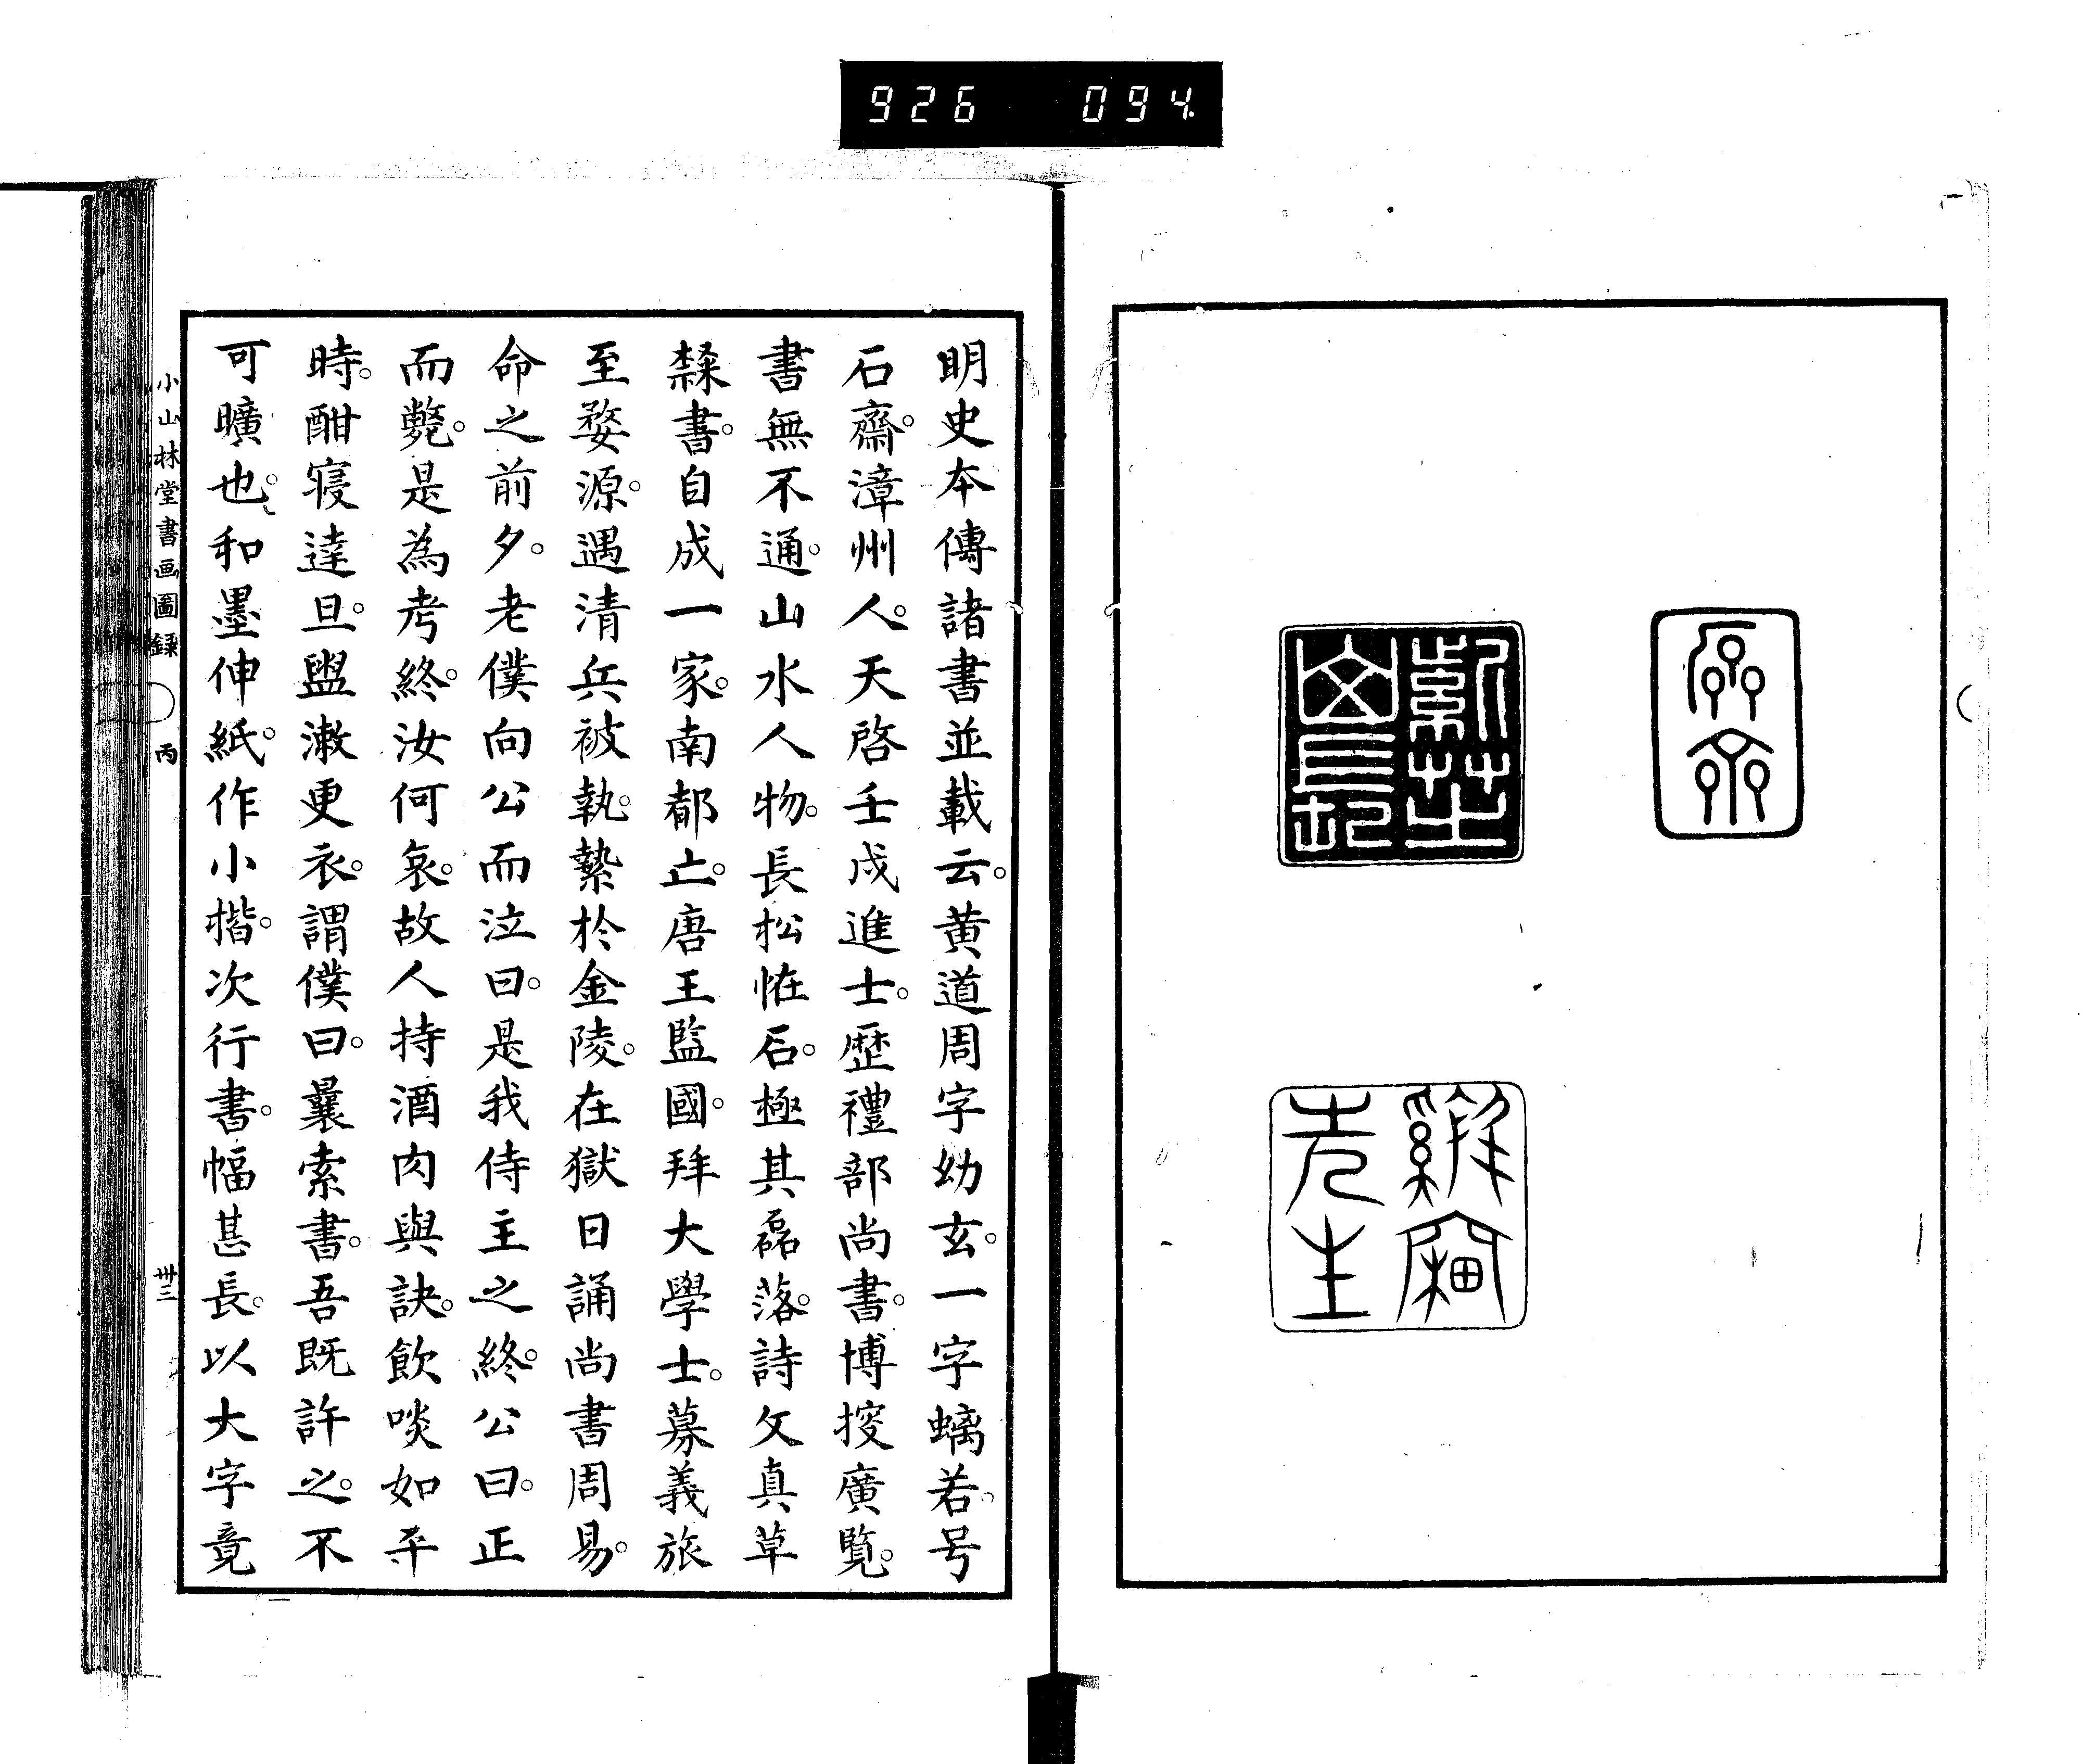 926 094
明史本傳諸書並載云。黄道周字幼玄。一字螭若。号
石齋。漳州人。天啓壬戌進士。歷禮部尚書。博挍廣覧。
書無不通。山水人物。長松恠石。極其磊落。詩文真草
隸書。自成一家。南都亡。唐王監國。拜大學士。募義旅
至婺源。遇清兵被執。縶於金陵。在獄日誦尚書周易。
命之前夕。老僕向公而泣曰。是我侍主之終。公曰。正
而斃。是為考終。汝何哀。故人持酒肉與訣。飲啖如平
時。酣寝達旦。盥漱更衣。謂僕曰。曩索書。吾既許之。不
可曠也。和墨伸紙。作小楷。次行書。幅甚長。以大字竟
小山林堂書画圖録 丙 卅三